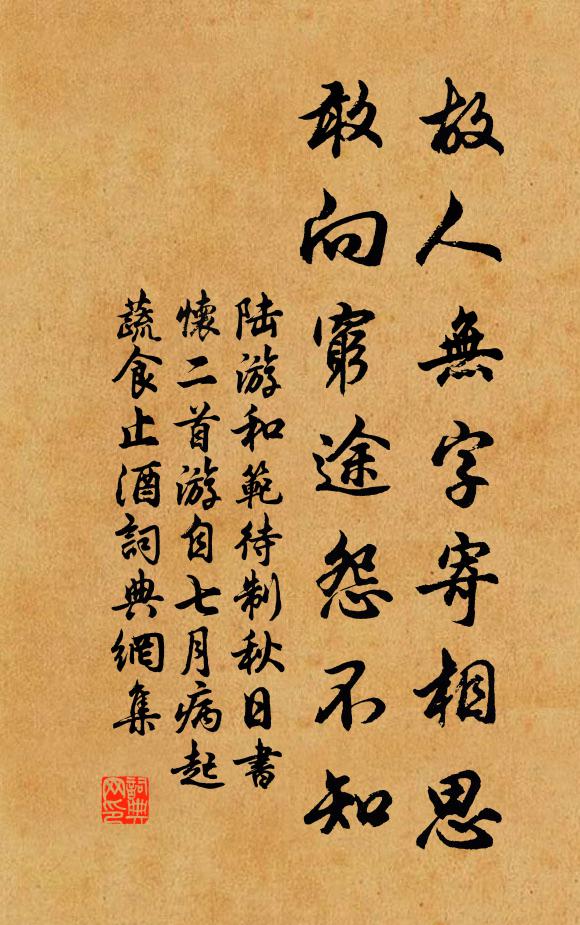 故人無字寄相思
敢向窮途怨不知
陆游和範待制秋日書
懷二首游自七月病起
蔬食止酒詞典網集
詞典
网印